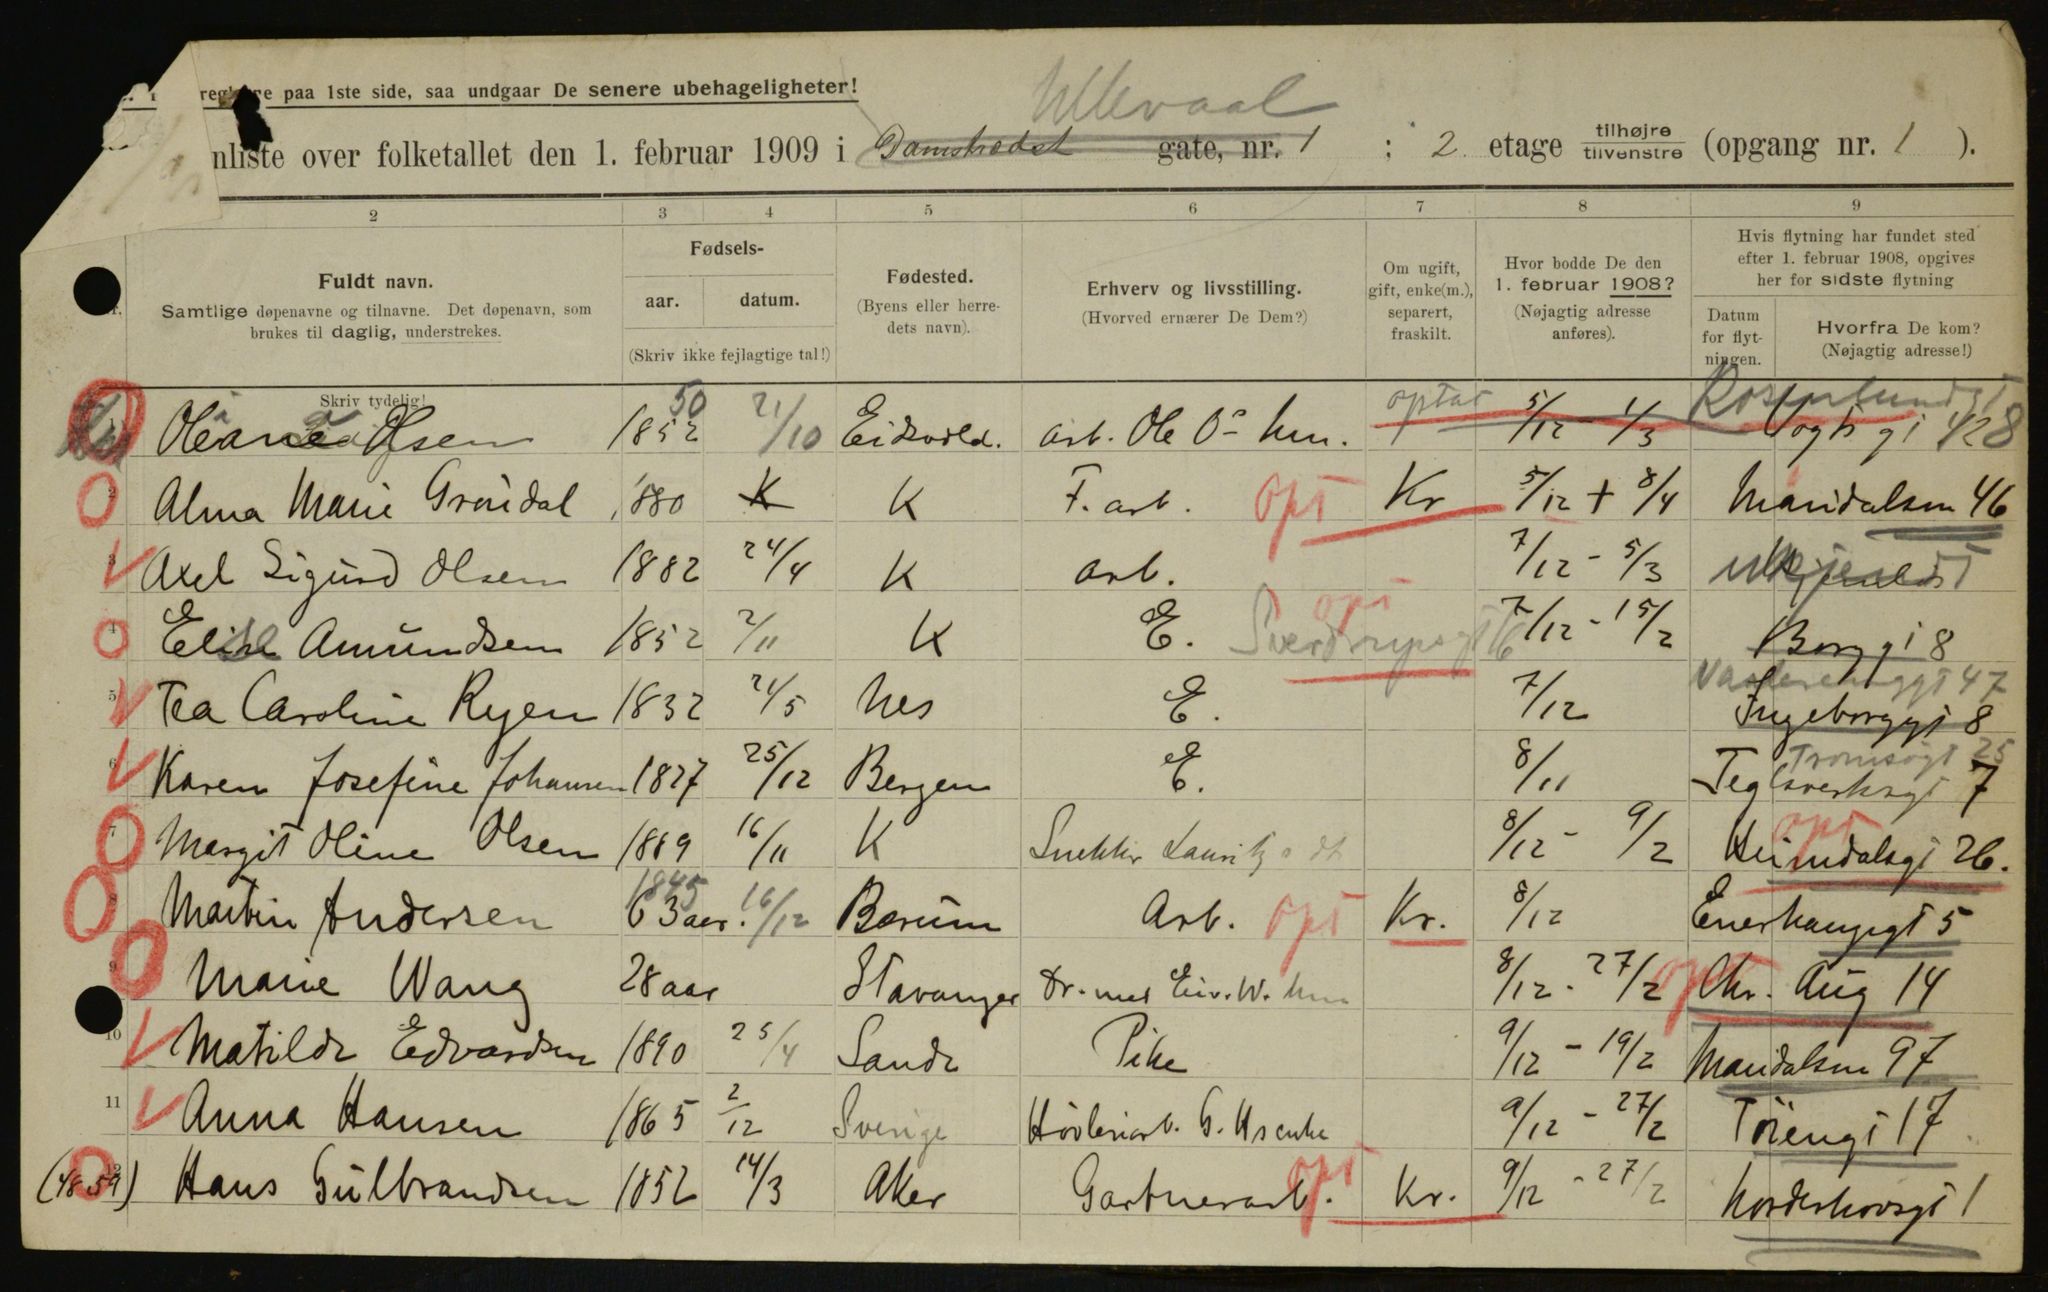 paa 1ste side, saa undgaar De senere ubehageligheter!
Ullevaal
nliste over folketallet den 1. februar 1909 i Damstrædet gate, nr. 1 ; 2 etage tilhøjre tilvenstre (opgang nr. 1 ).
2 3 4 5 6 7 8 9
Fuldt navn.
Samtlige døpenavne og tilnavne. Det døpenavn, som
brukes til daglig, understrekes.
Skriv tydelig!
Fødsels-
aar. datum.
(Skriv ikke fejlagtige tal!)
Fødested.
(Byens eller herre-
dets navn).
Erhverv og livsstilling.
(Hvorved ernærer De Dem?)
Om ugift,
gift, enke(m.),
separert,
fraskilt.
Hvor bodde De den
1. februar 1908?
(Nøjagtig adresse
anføres).
Hvis flytning har fundet sted
efter 1. februar 1908, opgives
her for sidste flytning
Datum
for flyt-
ningen.
Hvorfra De kom?
(Nøjagtig adresse!)
50 optat Rosenlundgt 8
1 Olsen 1852 21/10 Eidsvold. arb. Ole Os hm. 5/12 - 1/3 Vogtsgt
2 Alma Marie Grøndal 1880 K K F. arb. opt Kr 5/12 + 8/4 Maridalsvn 46
3 Axel Sigurd Olsen 1882 24/4 K arb. 7/12 - 5/3 Ukjendt
opt
4 Elise Amundsen 1852 2/11 K E. Sverdrupsgt 16 7/12 - 15/2 Borggt 8
47
5 Tea Caroline Ryen 1832 21/5 Nes E. 7/12 Ingeborggt 8
Tromsøgt 25
6 Karen Josefine Johansen 1827 25/12 Bergen E. 8/11 Teglverksgt 7
opt
7 Margit Oline Olsen 1889 16/11 K Snekker Lauritz O dt 8/12 - 9/2 Heimdalsgt 26.
1845
8 Martin Andersen 63 aar. 16/12 Bærum Arb. opt Kr. 8/12 Enerhauggt 5
9 Marie Wang 28 aar Stavanger Dr. med Eiv. W. hm 8/12 - 27/2 opt Chr. Aug 14
10 Matilde Edvardsen 1890 25/4 Sande Pike 9/12 - 19/2 Maridalsvn 97
11 Anna Hansen 1865 2/12 Sverige Høvleriarb. G. Hs enke 9/12 - 27/2 Tøiengt 17
(48 59) 12 Hans Gulbrandsen 1852 14/3 Aker Gartnerarb. opt Kr. 9/12 - 27/2 Norderhovsgt 1